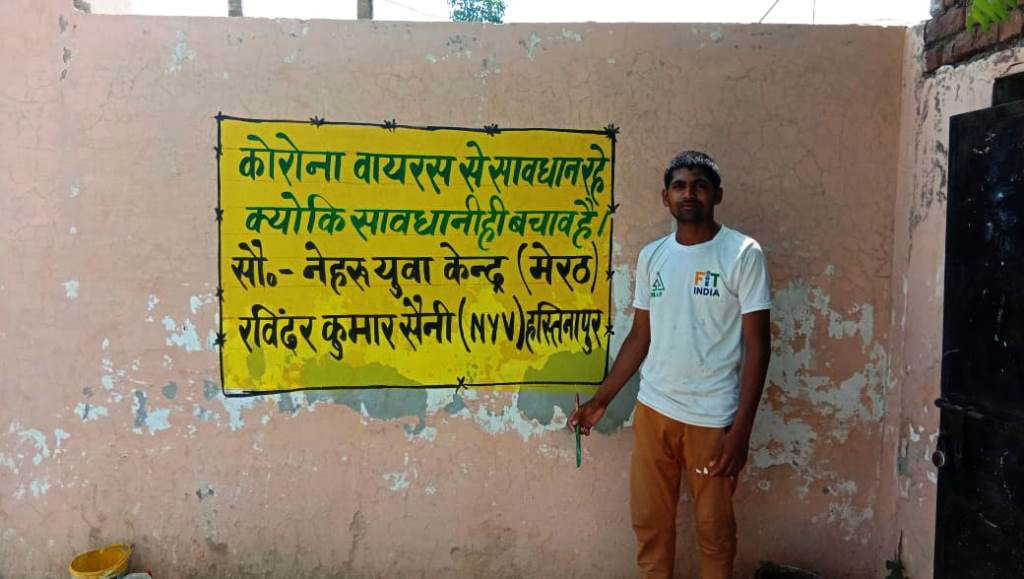 कोरोना वायरस से सावधान रहे
क्योकि सावधानी ही बचाव है।
सौ०- नेहरु युवा केन्द्र (मेरठ)
रविंदर कुमार सैनी (NYV) हस्तिनापुर
FIT
INDIA